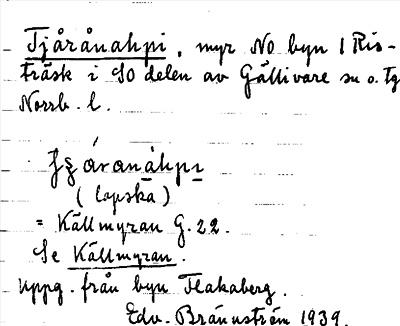 Tjårånahpi, myr NO byn 1 Ris-
träsk i SO delen av Gällivare sn o. tg
Norrb. l.
áranáhpi
(lapska)
= Källmyran G. 22.
Se Källmyran.
Uppg. från byn Flakaberg.
Edv. Brännström 1939.